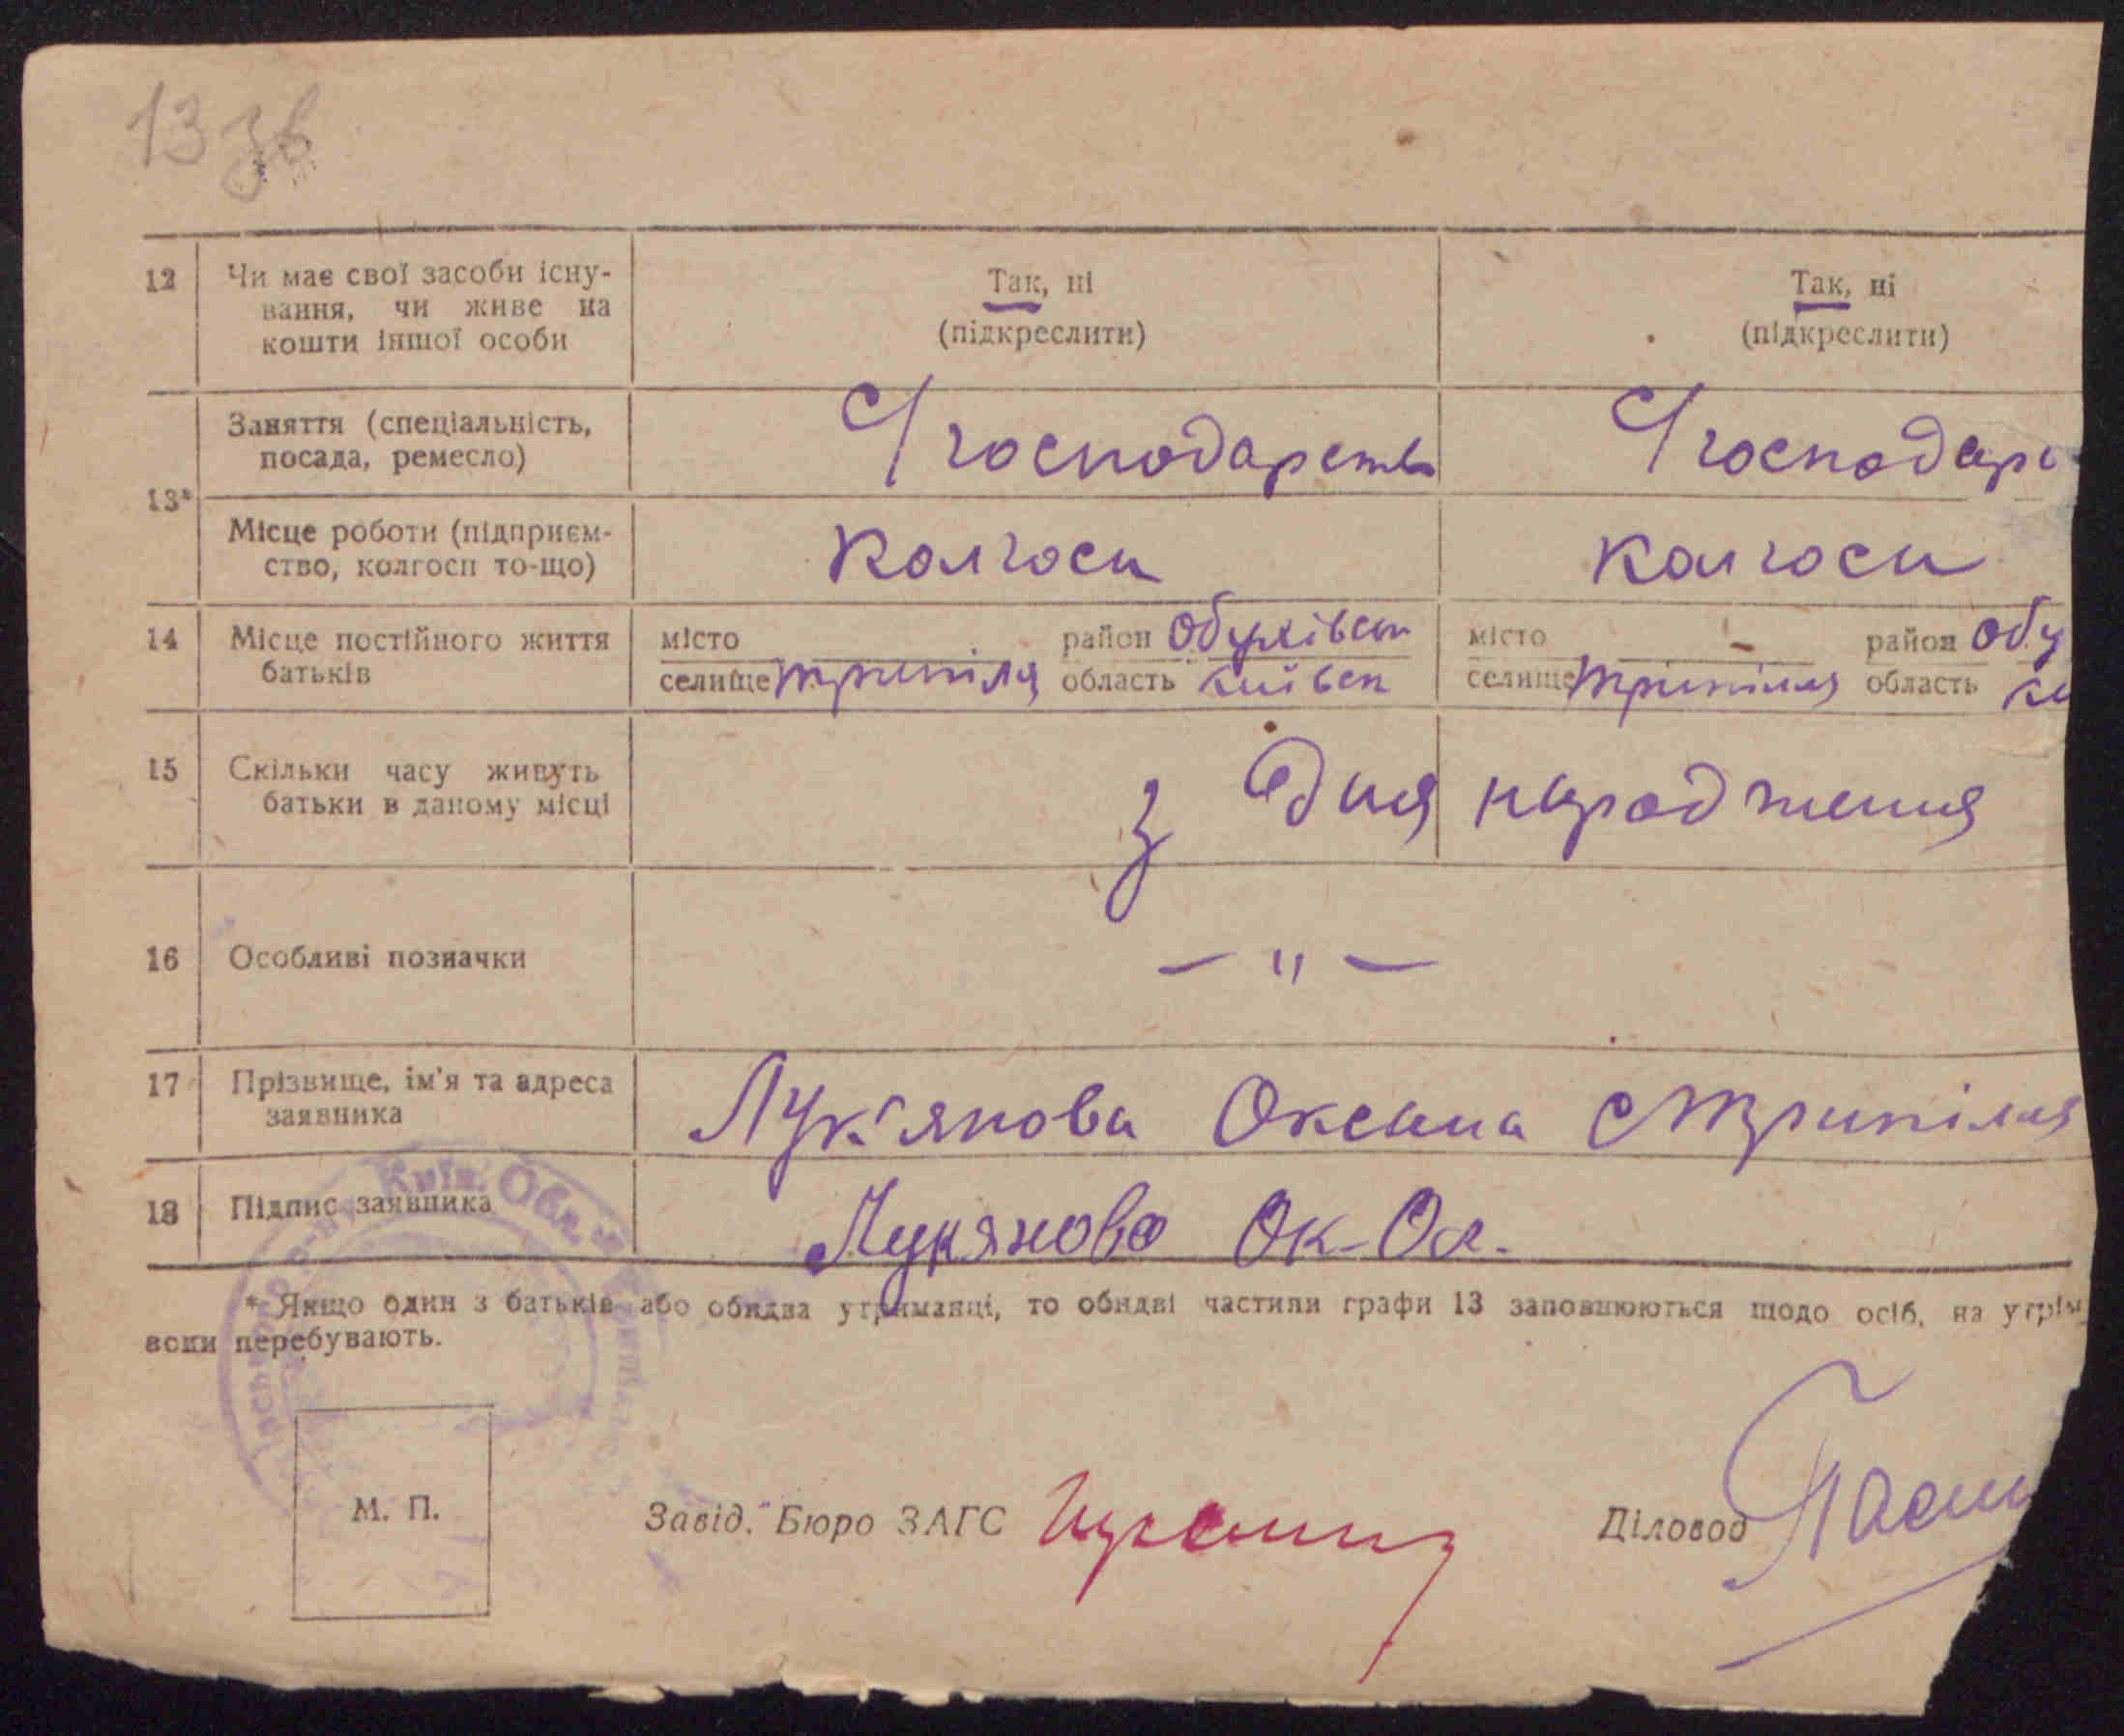 13 зв
12 Чи має свої засоби існу- Так, ні Так, ні
вання, чи живе на (підкреслити) (підкреслити)
кошти іншої особи
13* Заняття (спеціальність, С/господарств С/господарс
посада, ремесло)
Місце роботи (підприєм- Колгосп Колгосп
ство, колгосп то-що)
14 Місце постійного життя місто район Обухівськ місто – район Обу
батьків селище Трипілля область Київськ селище Трипілля область Ки
15 Скільки часу живуть з дня народження
батьки в даному місці
16 Особливі позначки — " —
17 Прізвище, ім'я та адреса Лук'янова Оксана с Трипілля
заявника
18 Підпис заявника Лукянова Ок-Ол.
* Якщо один з батьків або обидва утриманці, то обидві частини графи 13 заповнюються щодо осіб, на утрим
вони перебувають.
Київ. Обл.
М. П. Завід. Бюро ЗАГС Діловод